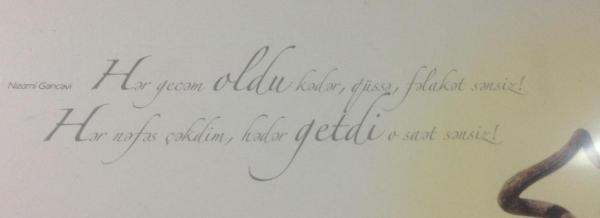 Nizami Gəncəvi Hər gecəm oldu kədər, qüssə, fəlakət sənsiz!
Hər nəfəs çəkdim, hədər getdi o saət sənsiz!